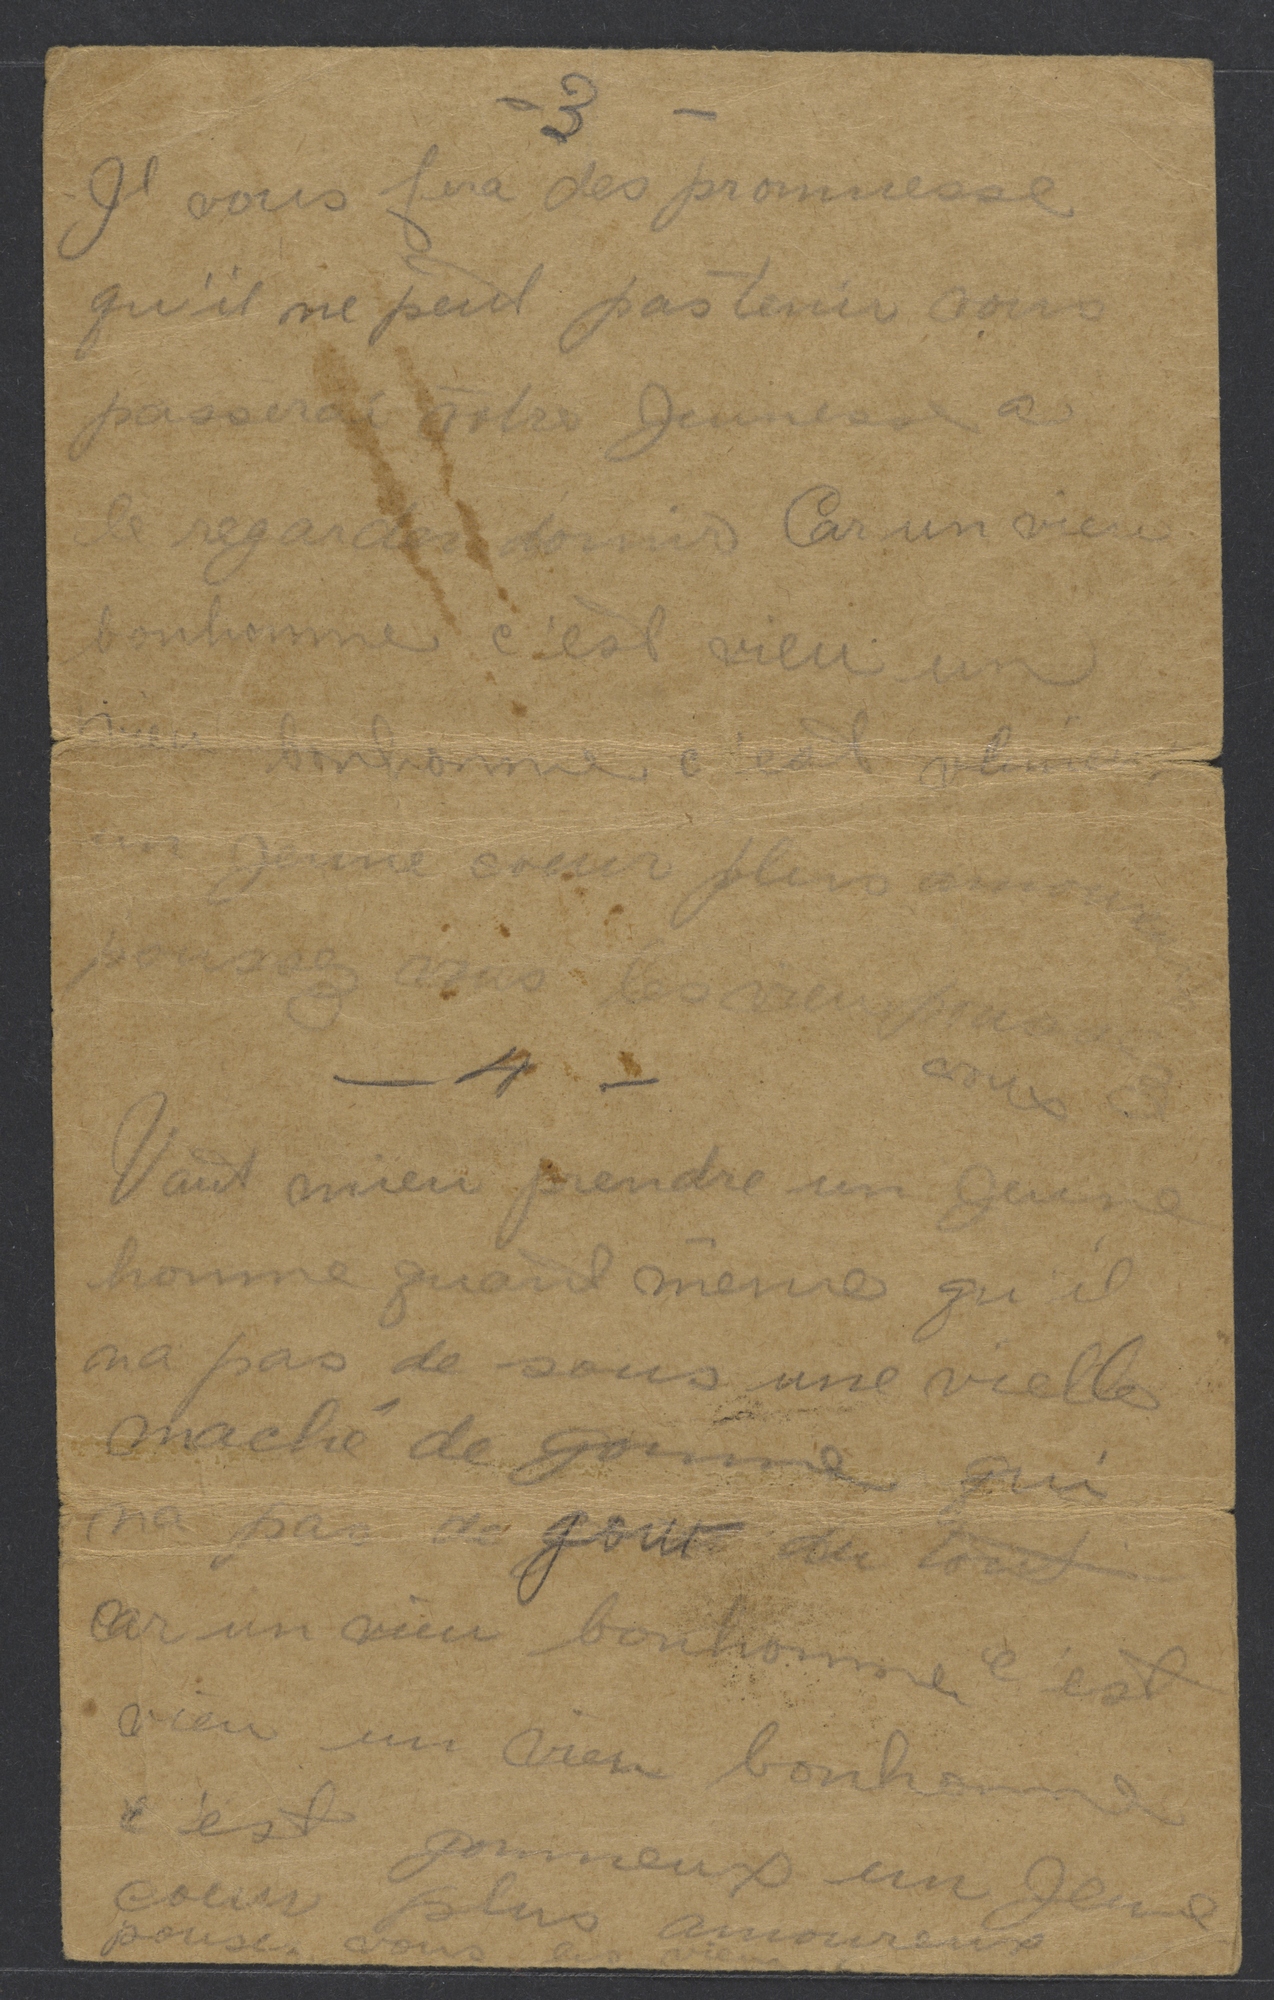 - 3 -
Il vous fera des promnesse
qu'il ne peut pas tenir vous
passerai votre Jeunesse a
le regarder dormir Car un vieu
bonhomme c'est vieu un
vieu bonhomme c'est
un Jeune coeur plus amoureux
poussez vous les vieu pour
vous
- 4 -
Vaut mieu prendre un Jeune
homme quand même qu'il
na pas de sous une vielle
maché de gomme qui
na pas de gout du tout
car un vieu bonhomme c'est
vieu un vieu bonhomme
c'est gommeux un Jeune
coeur plus amoureux
pousse vous les vieu